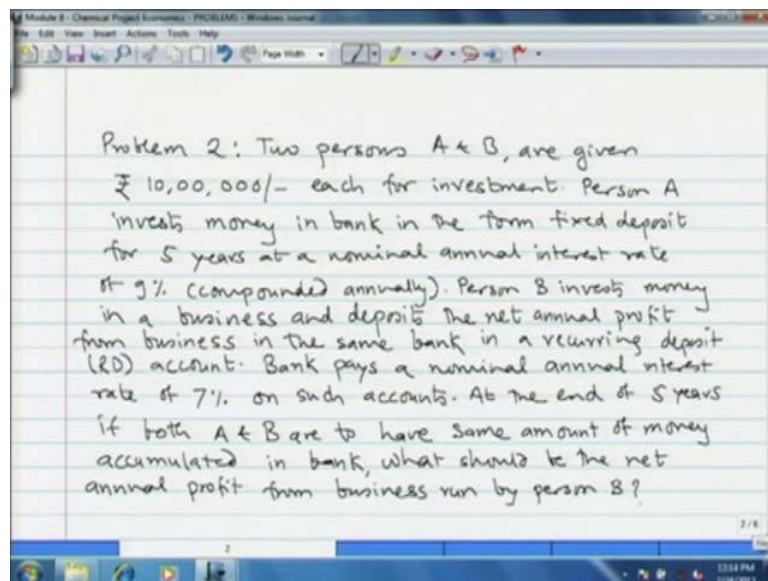 Module 8 - Chemical Project Economics - PROBLEMS - Windows Journal
File Edit View Insert Actions Tools Help
Page Width
Problem 2: Two persons A & B, are given
₹ 10,00,000/- each for investment. Person A
invests money in bank in the form fixed deposit
for 5 years at a nominal annual interest rate
of 9% (compounded annually). Person B invests money
in a business and deposits the net annual profit
from business in the same bank in a recurring deposit
(RD) account. Bank pays a nominal annual interest
rate of 7% on such accounts. At the end of 5 years
if both A & B are to have same amount of money
accumulated in bank, what should be the net
annual profit from business run by person B?
2/6
2
12:14 PM